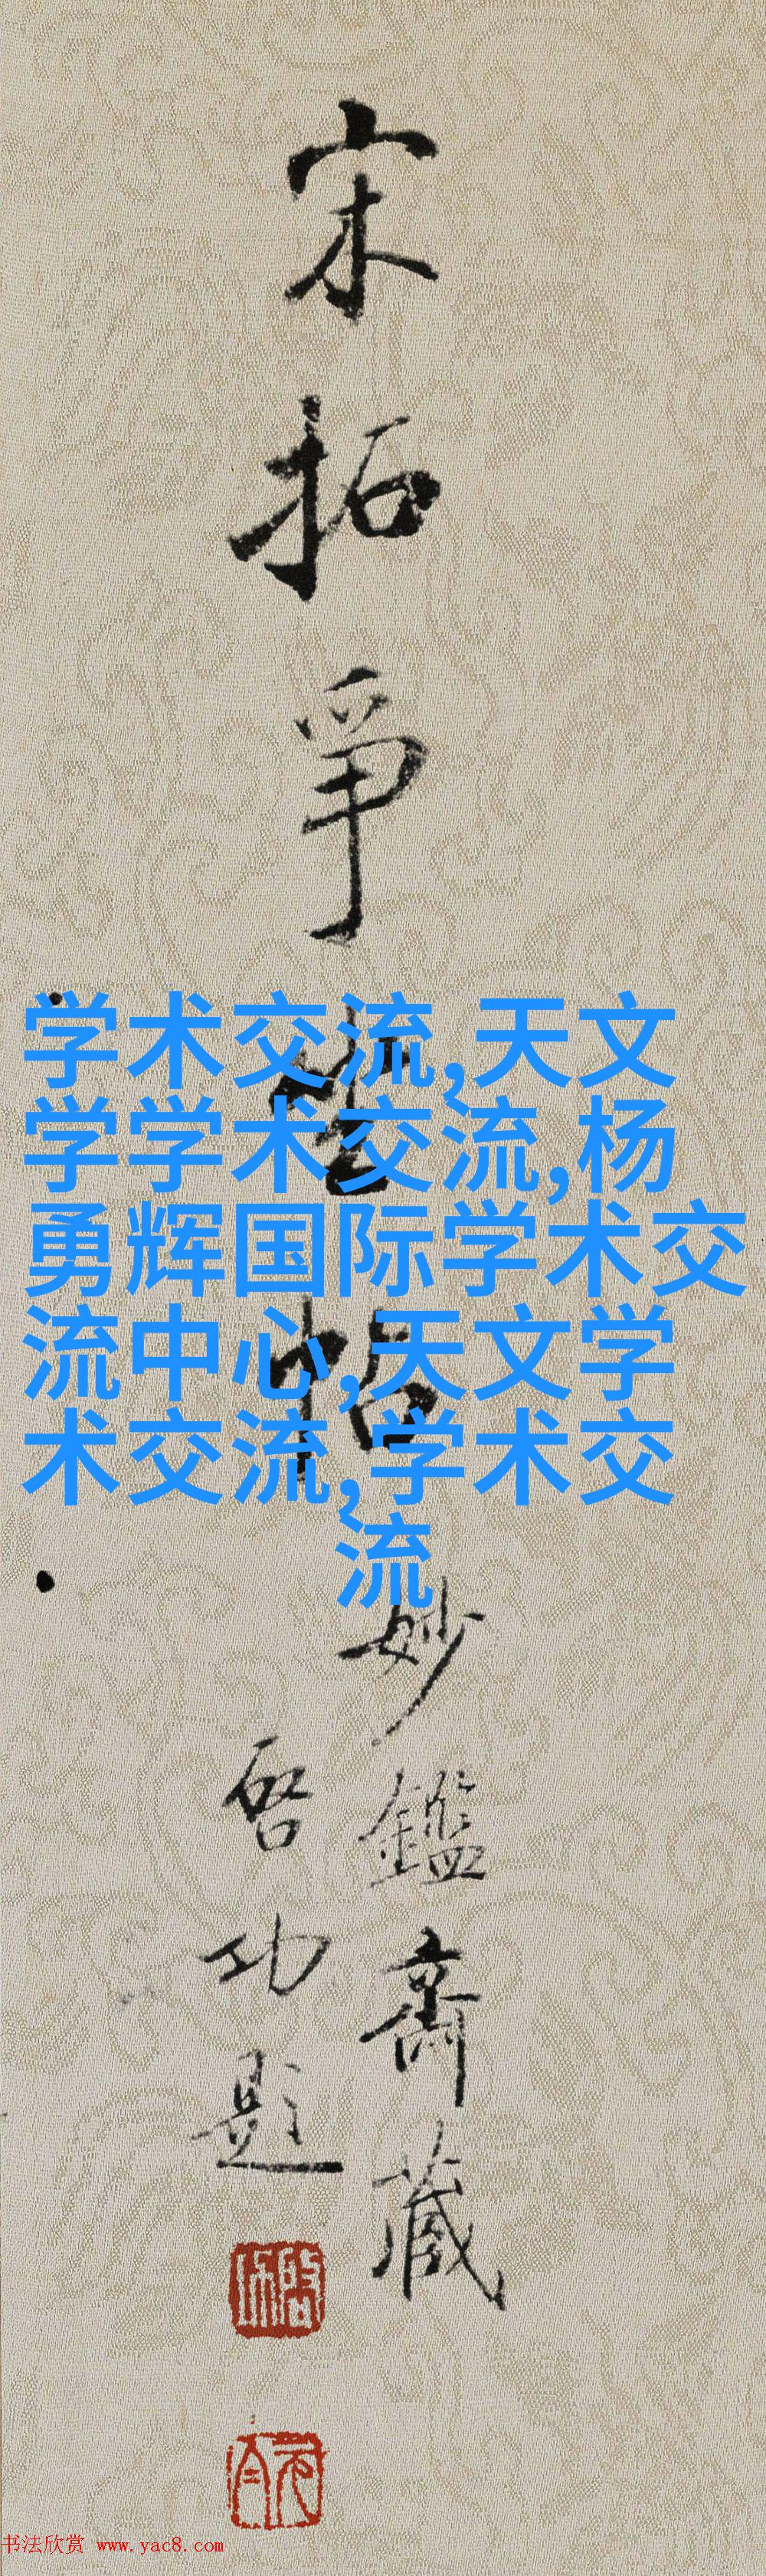 宋拓争坐帖
妙鑑斋藏
启功题
学术交流,天文
学学术交流,杨
勇辉国际学术交
流中心,天文学
术交流,学术交
流
书法欣赏 www.yac8.com